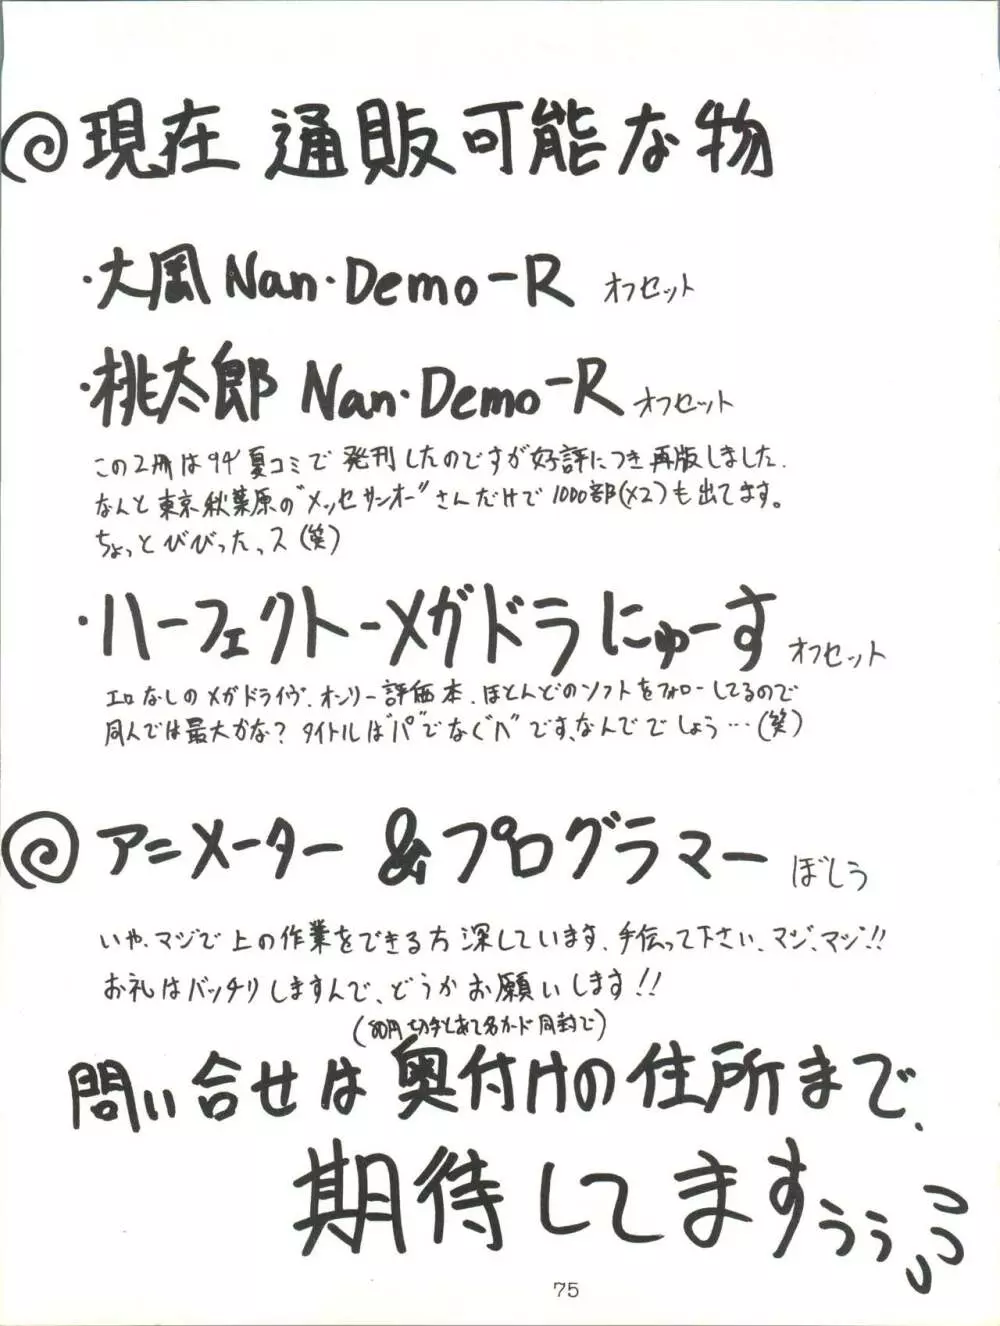 現在 通販可能な物
・大凮 Nan・Demo-R オフセット
・桃太郎 Nan・Demo-R オフセット
この2冊は94'夏コミで発刊したのですが好評につき再版しました.
なんと東京秋葉原の"メッセサンオー"さんだけで1000部(×2)も出てます。
ちょっとびびったっス(笑)
・ハーフェクト-メガドラにゅーす オフセット
エロなしのメガドライヴ.オンリー評価本.ほとんどのソフトをフォローしてるので
同人では最大かな?タイトルは"パ"でなく"ハ"です、なんででしょう…(笑)
アニメーター &プログラマー ぼしう
いや、マジで上の作業をできる方 深しています、手伝って下さい、マジ、マジ!!
お礼はバッチリしますんで、どうかお願いします!!
(80円切手とあて名カード同封で)
問い合せは奥付けの住所まで、
期待してますぅぅ
75